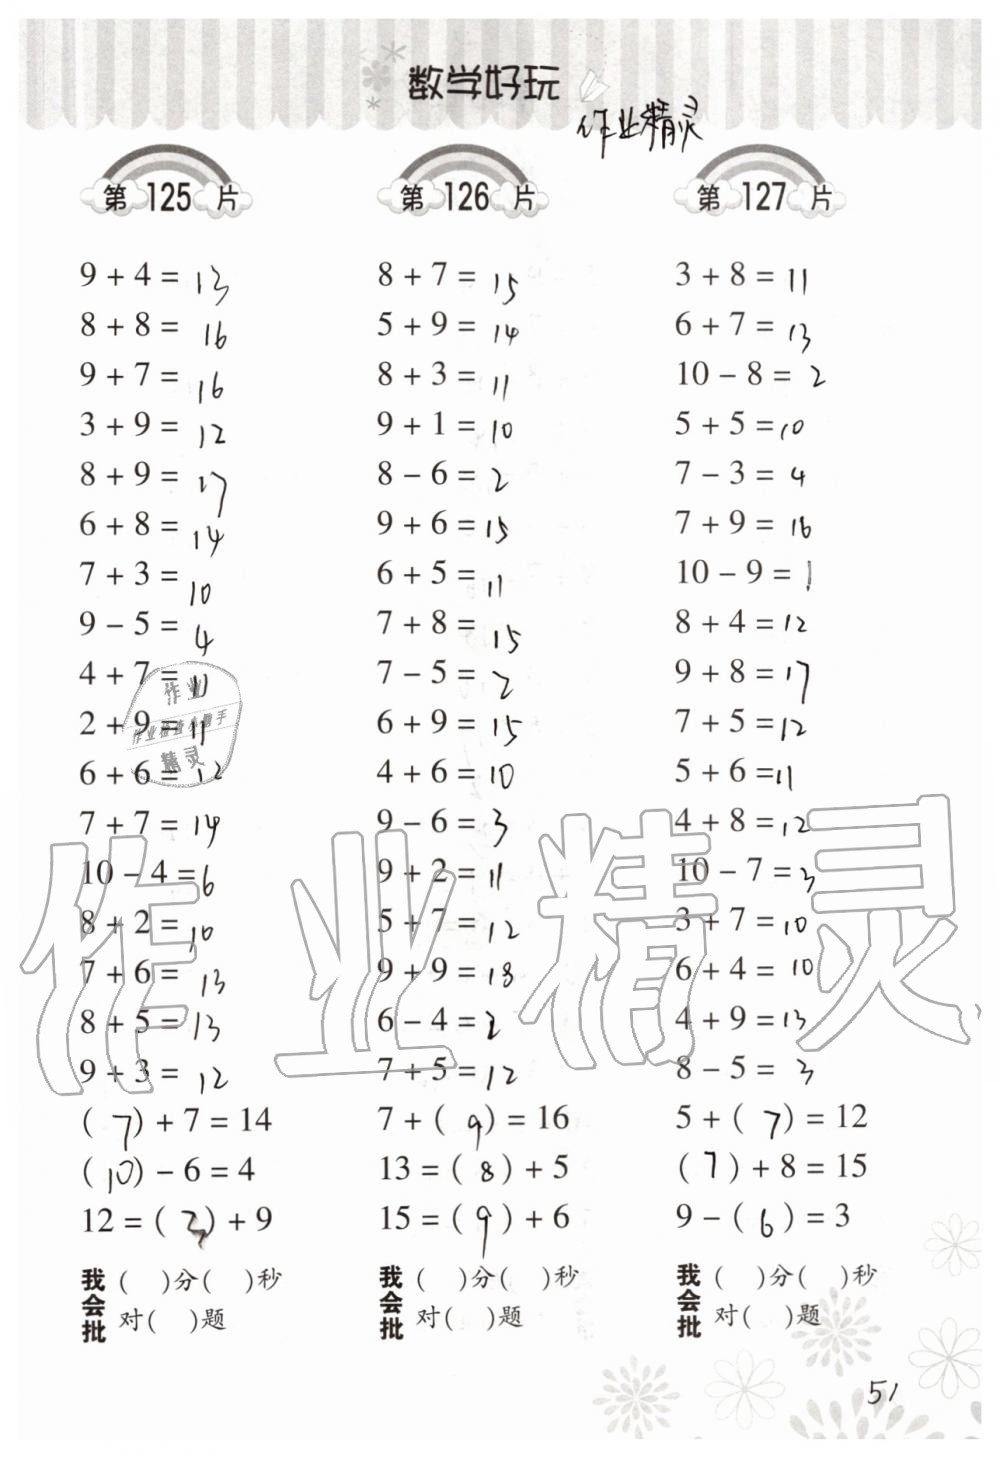 数学好玩
作业精灵
第125片
9 + 4 = 13
8 + 8 = 16
9 + 7 = 16
3 + 9 = 12
8 + 9 = 17
6 + 8 = 14
7 + 3 = 10
9 − 5 = 4
4 + 7 = 11
2 + 9 = 11
6 + 6 = 12
7 + 7 = 14
10 − 4 = 6
8 + 2 = 10
7 + 6 = 13
8 + 5 = 13
9 + 3 = 12
( 7 ) + 7 = 14
( 10 ) − 6 = 4
12 = ( 3 ) + 9
我会批
( )分( )秒
对( )题
第126片
8 + 7 = 15
5 + 9 = 14
8 + 3 = 11
9 + 1 = 10
8 − 6 = 2
9 + 6 = 15
6 + 5 = 11
7 + 8 = 15
7 − 5 = 2
6 + 9 = 15
4 + 6 = 10
9 − 6 = 3
9 + 2 = 11
5 + 7 = 12
9 + 9 = 18
6 − 4 = 2
7 + 5 = 12
7 + ( 9 ) = 16
13 = ( 8 ) + 5
15 = ( 9 ) + 6
我会批
( )分( )秒
对( )题
第127片
3 + 8 = 11
6 + 7 = 13
10 − 8 = 2
5 + 5 = 10
7 − 3 = 4
7 + 9 = 16
10 − 9 = 1
8 + 4 = 12
9 + 8 = 17
7 + 5 = 12
5 + 6 = 11
4 + 8 = 12
10 − 7 = 3
3 + 7 = 10
6 + 4 = 10
4 + 9 = 13
8 − 5 = 3
5 + ( 7 ) = 12
( 7 ) + 8 = 15
9 − ( 6 ) = 3
我会批
( )分( )秒
对( )题
作业
精灵
作业精灵
51